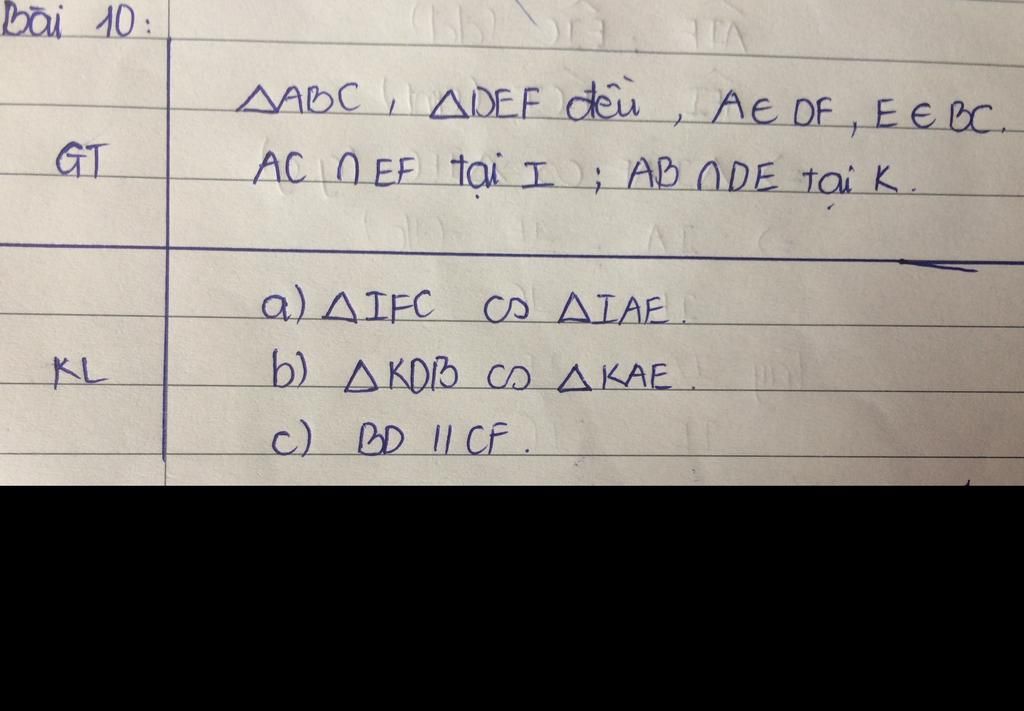 Bài 10:
△ABC, △DEF đều, A∈ DF, E∈ BC.
GT
AC ∩ EF tại I ; AB ∩ DE tại K.
a) △IFC ∽ △IAE.
KL
b) △KDB ∽ △KAE.
c) BD // CF.